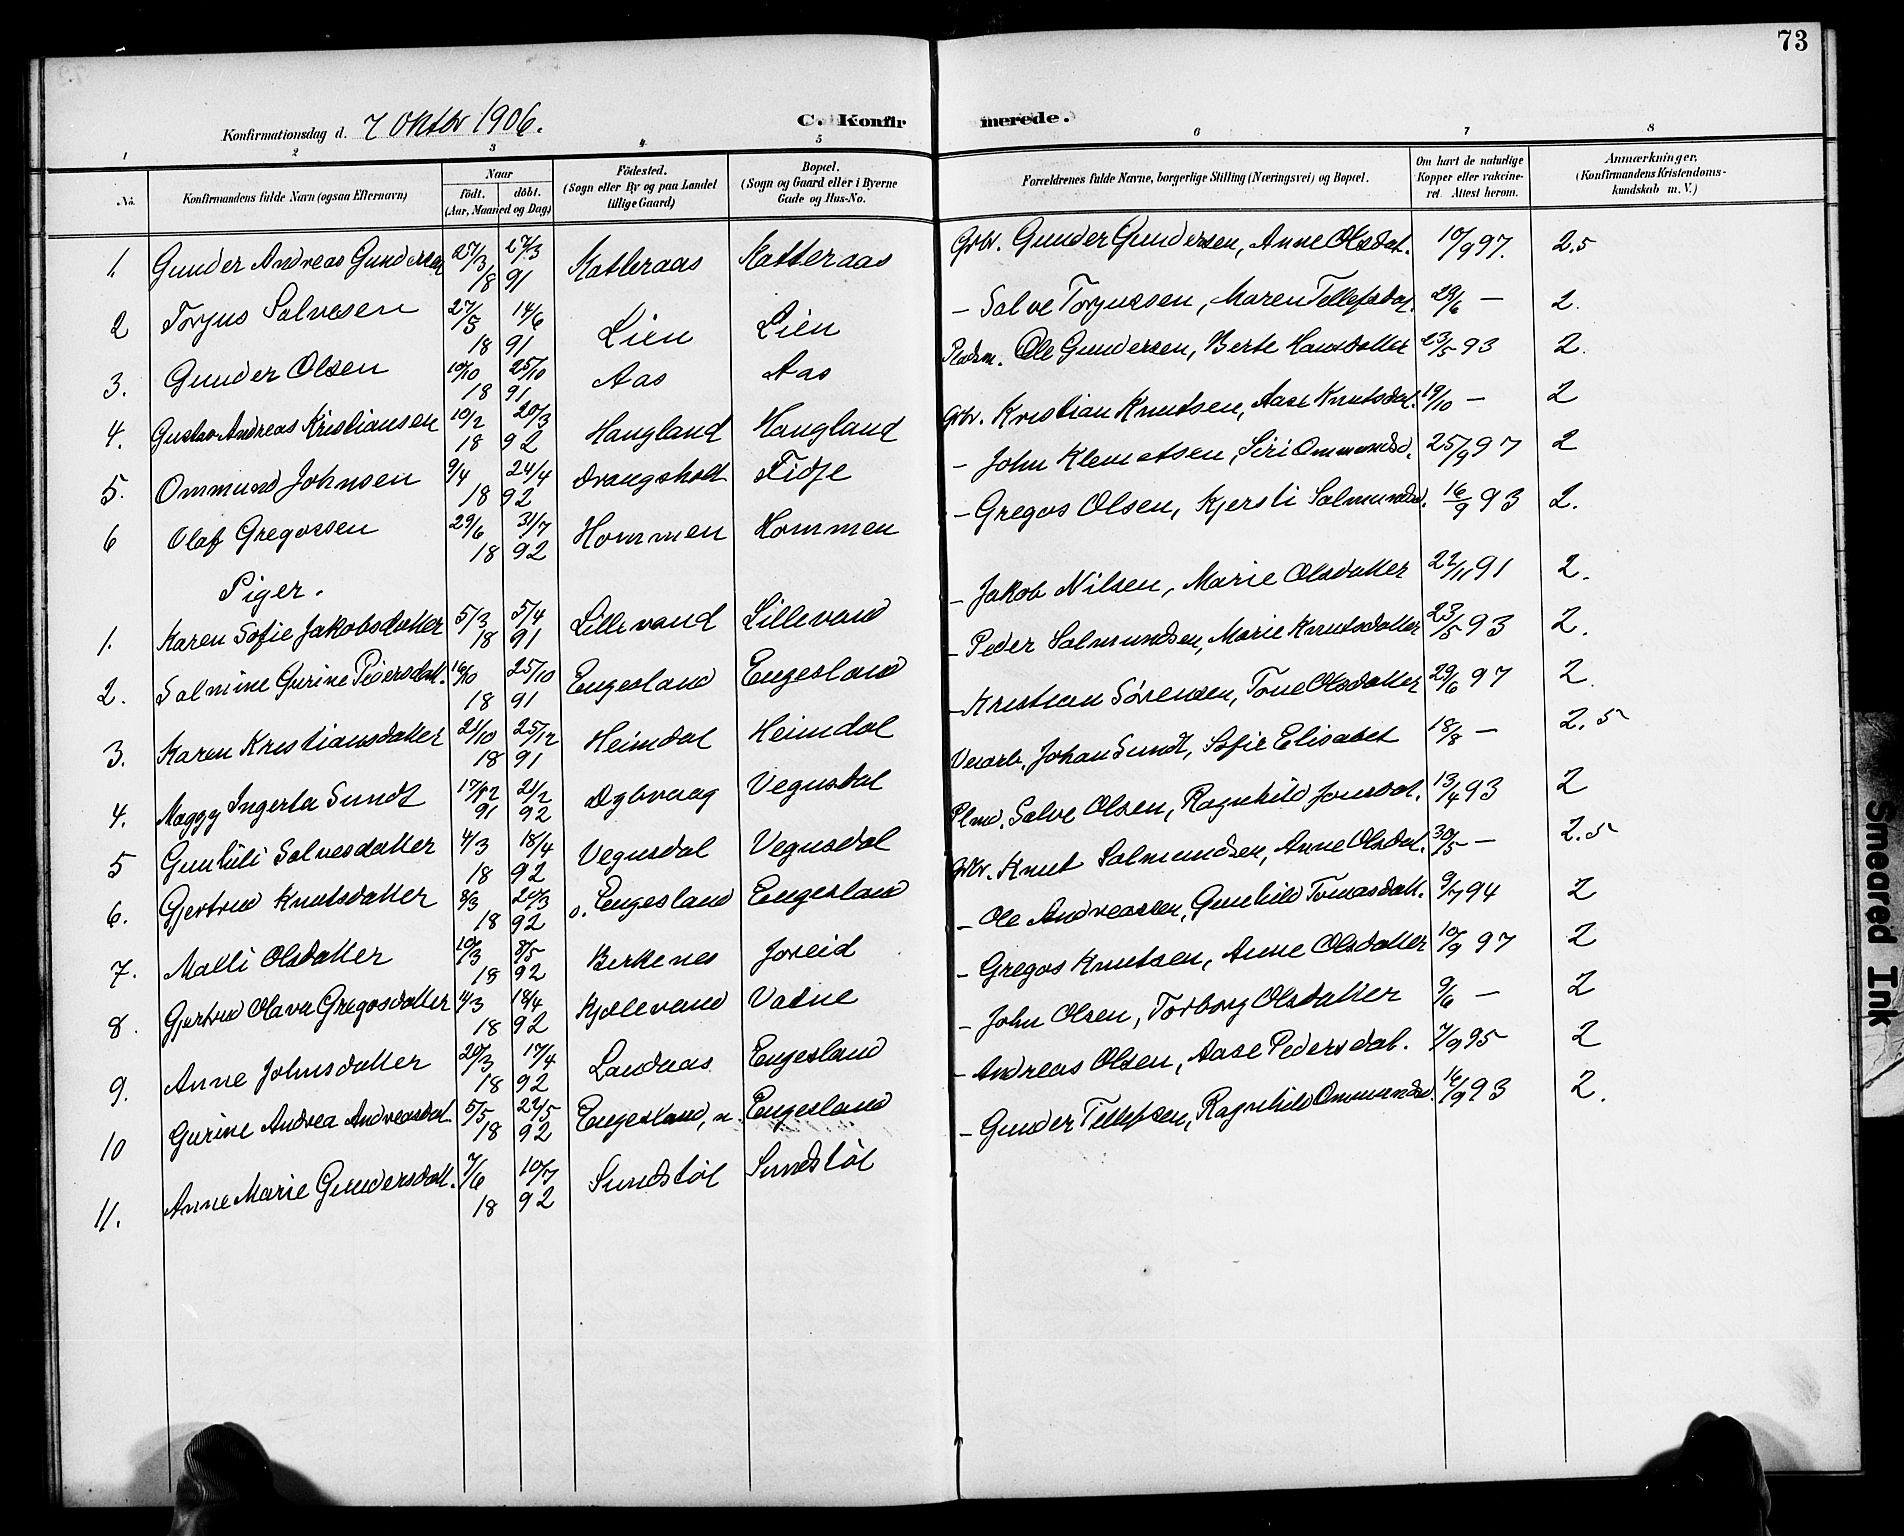 73
Konfirmationsdag d. 7 Oktbr 1906.
C. Konfirmerede.
1 2 3 4 5 6 7 8
No. Konfirmandens fulde Navn (ogsaa Efternavn) Naar födt. döbt. (Aar, Maaned og Dag) Födested. (Sogn eller By og paa Landet tillige Gaard) Bopæl. (Sogn og Gaard eller i Byerne Gade og Hus-No. Forældrenes fulde Navne, borgerlige Stilling (Næringsvei) og Bopæl. Om havt de naturlige Kopper eller vakcineret. Attest herom. Anmærkninger, (Konfirmandens Kristendomskundskab m. V.)
1. Gunder Andreas Gundersen 27/3 18 27/3 91 Katteraas Katteraas Gbr. Gunder Gundersen, Anne Olsdat. 10/9 97. 2.5
2 Torjus Salvesen 27/5 18 14/6 91 Lien Lien - Salve Torjussen, Maren Tellefsdat. 29/6 — 2.
3. Gunder Olsen 10/10 18 25/10 91 Aas Aas Pladsm. Ole Gundersen, Berte Hansdatter 23/5 93 2.
4. Gustav Andreas Kristiansen 10/2 18 20/3 92 Haugland Haugland Gbr. Kristian Knutsen, Aase Knutsdat. 19/10 — 2
5. Ommund Johnsen 9/4 18 24/4 92 Drangsholt Fidje - John Klemetsen, Siri Ommundsd. 25/9 97 2
6 Olaf Gregossen 29/6 18 31/7 92 Hommen Hommen - Gregos Olsen, Kjersti Salmundsd. 16/9 93 2.
Piger.
1. Karen Sofie Jakobsdatter 5/3 18 5/4 91 Lillevand Lillevand - Jakob Nilsen, Marie Olsdatter 22/11 91 2.
2. Salmine Gurine Pedersdatt. 16/10 18 25/10 91 Engesland Engesland - Peder Salmundsen, Marie Knutsdatter 23/5 93 2.
3. Karen Kristiansdatter 21/10 18 25/12 91 Heimdal Heimdal - Kristian Sörensen, Tone Olsdatter 29/6 97 2.
4. Maggy Ingerta Sundt 17/12 91 21/2 92 Dybvaag Vegusdal Veiarb. Johan Sundt, Sofie Elisabet 18/8 — 2.5
5 Gunhild Salvesdatter 4/3 18 18/4 92 Vegusdal Vegusdal Plmd. Salve Olsen, Ragnhild Jonsdat. 13/4 93 2
6. Gjertrud Knutsdatter 8/3 18 20/3 92 o. Engesland Engesland Gbr. Knut Salmundsen, Anne Olsdat. 30/5 — 2.5
7. Malli Olsdatter 10/3 18 8/5 92 Birkenes Joreid - Ole Andreassen, Gunhild Tomasdatt. 9/7 94 2
8. Gjertrud Olava Gregosdatter 11/3 18 18/4 92 Kjellevand Vatne - Gregos Knutsen, Anne Olsdatter 10/9 97 2
9. Anne Johnsdatter 20/3 18 17/4 92 Landaas Engesland - John Olsen, Torborg Olsdatter 9/6 — 2
10 Gurine Andrea Andreasdat. 5/5 18 22/5 92 Engesland, n. Engesland - Andreas Olsen, Aase Pedersdat. 7/9 95 2
11. Anne Marie Gundersdatt. 7/6 18 10/7 92 Sundstöl Sundstöl - Gunder Tellefsen, Ragnhild Ommundsd. 16/9 93 2.
Smeared Ink